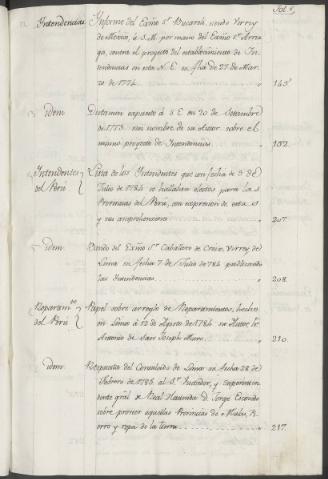 Fol.s
Intendencias. Informe del Exmo S.r Bucareli, siendo Virrey
de Mexico, á S.M. por mano del Exmo S.r Arria-
ga, contra el proyecto del establecimiento de In-
tendencias en esta N.E. su fha de 27 de Mar-
zo de 1774. 145.
idem Dictamen expuesto á S.E. en 20 de Setiembre
de 1773 sin nombre de su Autor sobre el
mismo proyecto de Intendencias. 182.
Intendentes del Perú Lista de los Intendentes que con fecha de 5 de
Julio de 1784 se hallaban electos para las
Provincias del Perú, con expresion de esta
y sus 207.
idem Bando del Exmo S.r Caballero de Croix, Virrey de
Lima su fecha 7 de Julio de 784 publicando
las Intendencias 208.
Repartim.tos del Perú Papel sobre arreglo de Repartimientos, hecho
en Lima á 12 de Agosto de 1784 su Autor
Antonio de San Joseph Muro. 210.
idem Respuesta del Consulado de Lima su fecha 28 de
Febrero de 1786 al S.r Visitador, y Superinten-
dente gral de Real Hacienda D. Jorge Escovedo
sobre proveer aquellas Provincias de Mulas, Fi-
erro y ropa de la tierra 217.